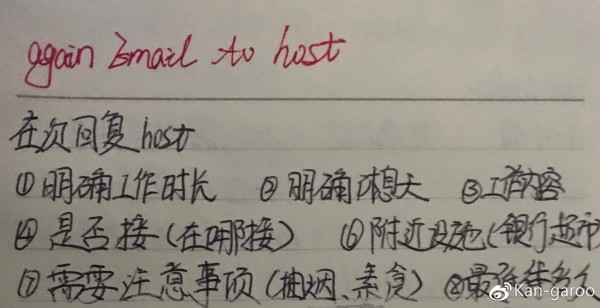 again Email to host
在次回复 host
① 明确工作时长 ② 明确 天 ③ 工作内容
④ 是否接(在哪接) ⑥ 附近设施(银行超市
⑦ 需要注意事项(抽烟、素食) ⑧ 最
@Kan-garoo